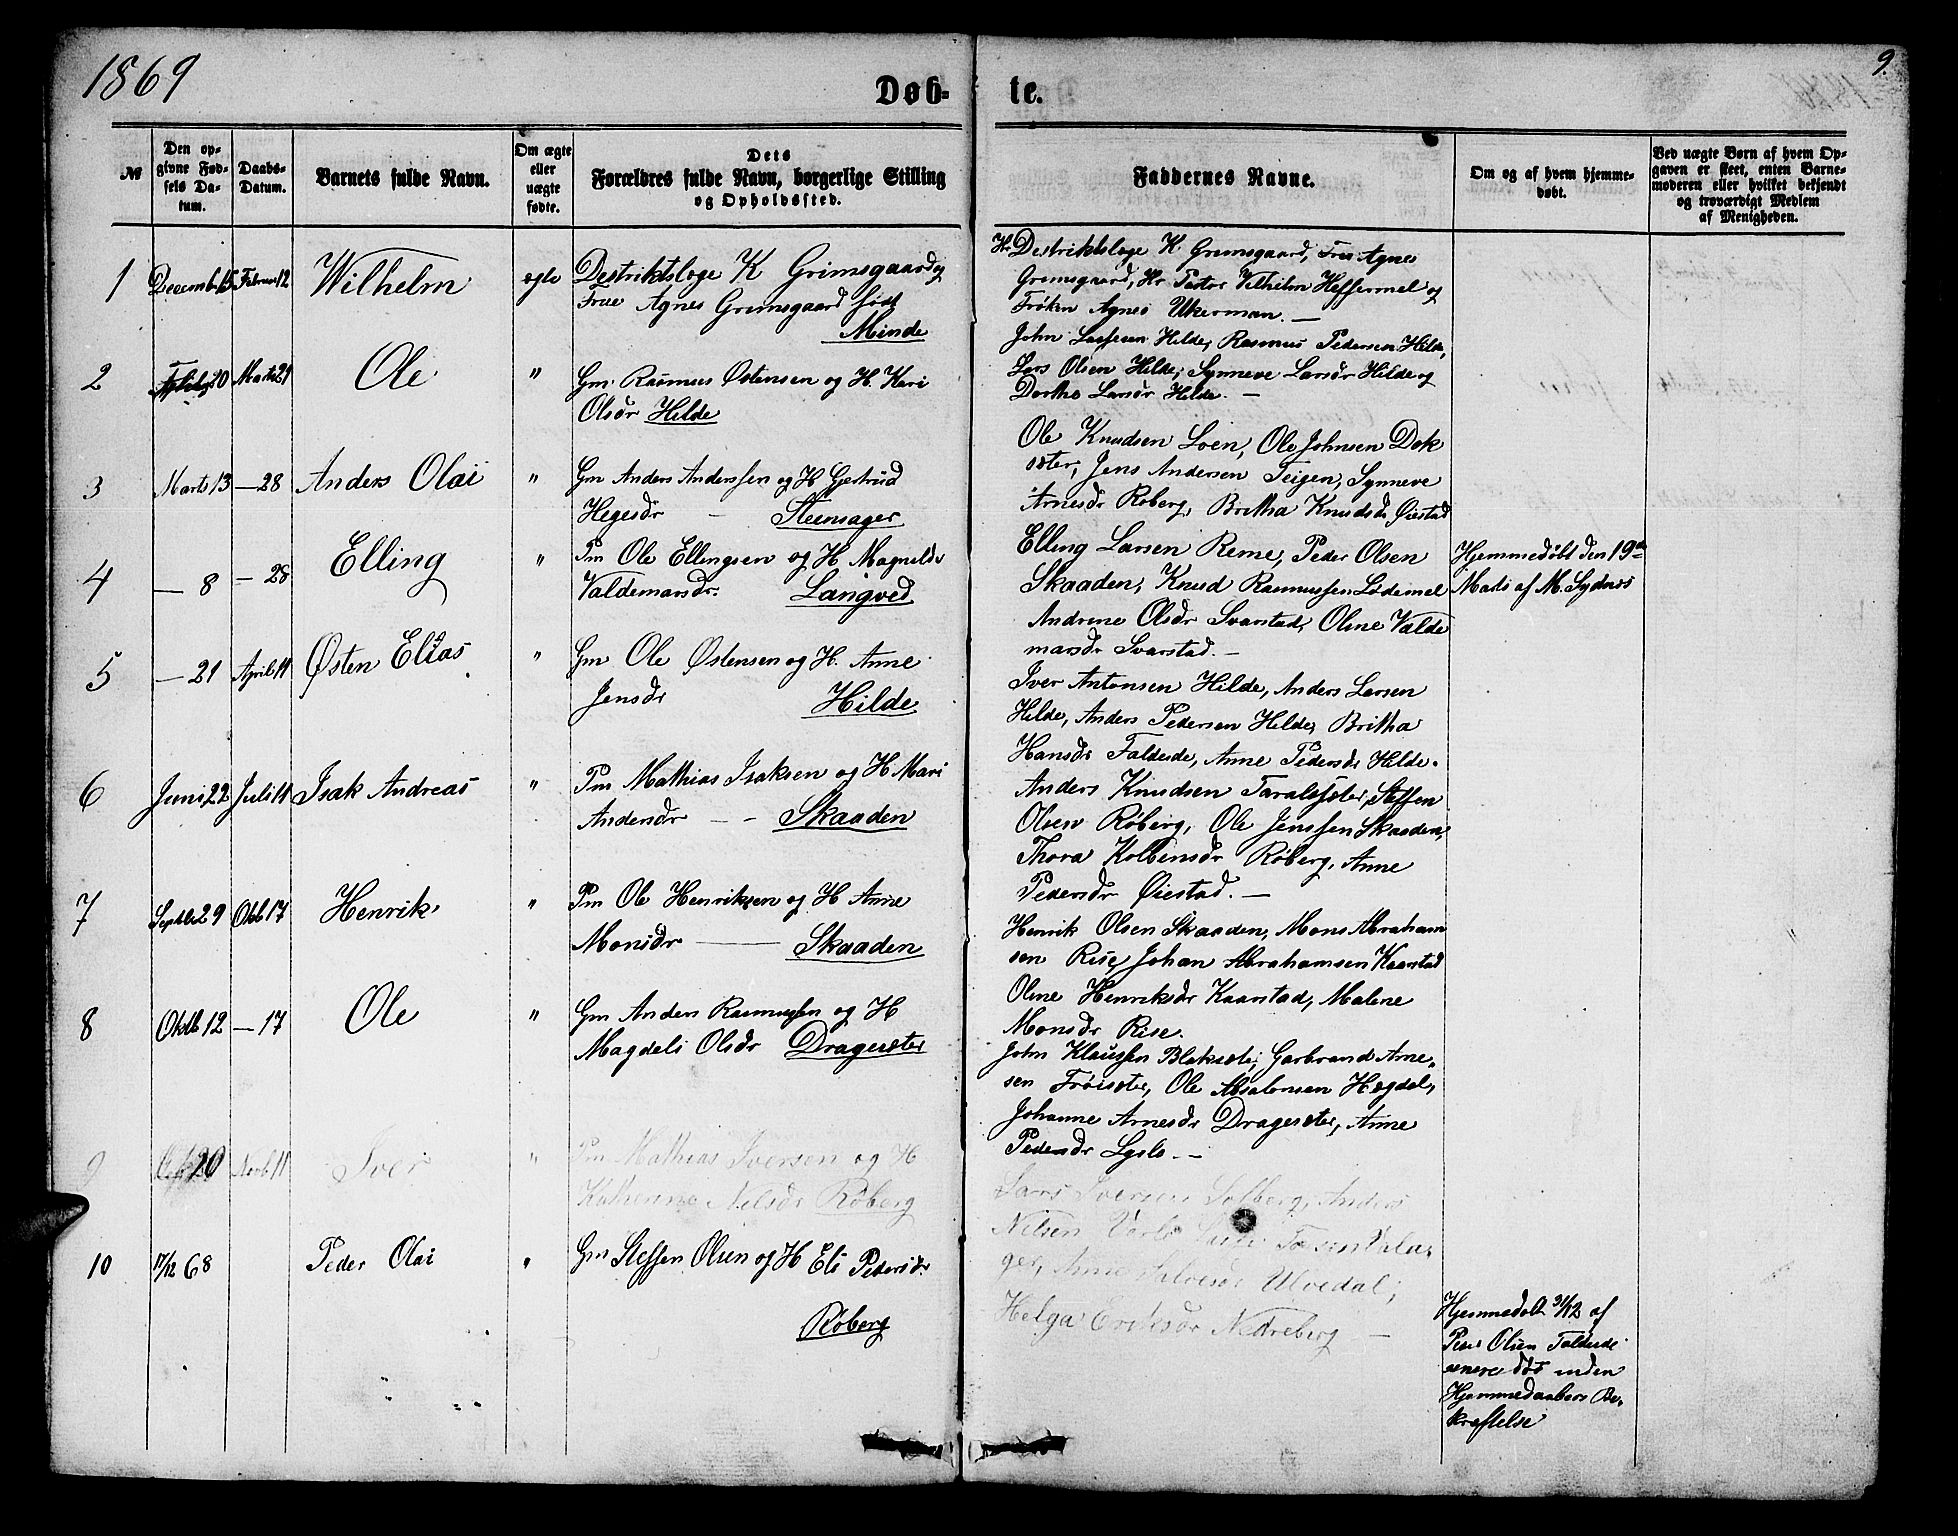 1869
Døb-
te.
9.
№
Den op-
givne Fød-
sels Da-
tum.
Daabs-
Datum.
Barnets fulde Navn.
Om ægte
eller
uægte
fødte.
Dets
Forældres fulde Navn, borgerlige Stilling
og Opholdssted.
Faddernes Navne.
Om og af hvem hjemme-
døbt.
Ved uægte Børn af hvem Op-
gaven er skeet, enten Barne-
moderen eller hvilket bekjendt
og troværdigt Medlem
af Menigheden.
1 Decemb 15 Februar 12 Wilhelm ægte Destriktslæge K Grimsgaard og
Frue Agnes Grimsgaard født
Minde
Hr Destriktslæge K. Grimsgaard, Frue Agnes
Grimsgaard, Hr Pastor Vilhelm Heffermel og
Frøken Agnes Ukerman. —
2 20 Marts 29 Ole " Gm. Rasmus Østensen og H. Kari
Olsdr Hilde
John Lassesen Hilde, Rasmus Pedersen Hilde,
Lars Olsen Hilde, Synneve Larsdr Hilde og
Dorthe Larsdr Hilde. —
3 Marts 13 — 28 Anders Olai " Gm Anders Anderssen og H Gjertrud
Hegesdr — Steensager
Ole Knudsen Loen, Ole Johnsen Dok
sæter, Jens Andersen Teigen, Synneve
Arnesdr Roberg, Britha Knudsdr Øiestad
4 — 8 — 28 Elling " Pm Ole Ellingsen og H Magnilde
Valdemarsdr. Langved
Elling Larsen Reme, Peder Olsen
Skaaden, Knud Rasmussen Lødemel
Andrine Olsdr Svarstad, Oline Valde
marsdr Svarstad. —
Hjemmedøbt den 19de
Marts af M. Sydnes
5 — 21 April 11 Østen Elias " Gm Ole Østensen og H. Anne
Jensdr Hilde
Iver Antonsen Hilde, Anders Larsen
Hilde, Anders Pedersen Hilde, Britha
Hansdr Faldeide, Anne Pedersdr Hilde.
6 Juni 22 Juli 11 Isak Andreas " Pm Mathias Isaksen og H Mari
Andersdr — - Skaaden
Anders Knudsen Taralsæter, Steffen
Olsen Røberg, Ole Jenssen Skaaden,
Thora Kolbensdr Røberg, Anne
Pedersdr Øiestad. —
7 Septbr 29 Oktb 17 Henrik " Pm Ole Henriksen og H Anne
Monsdr — Skaaden
Henrik Olsen Skaaden, Mons Abraham
sen Rise, Johan Abrahamsen Kaarstad
Oline Henriksdr Kaarstad, Malene
Monsdr Rise.
8 Oktb 12 — 17 Ole " Gm Anders Rasmussen og H
Magdeli Olsdr Dragesæter
John Klaussen Blaksæte, Garbrand Arne-
sen Frøisæter, Ole Absalonsen Hægdal,
Johanne Arnesdr Dragesæter, Anne
Pedersdr Lyslo. —
9 20 Novb 11 Iver " Pm Mathias Iversen og H
Katherine Nilsdr Røberg
Lars Iversen Solberg, Anders
Nilsen
ger, Anne Ulvedal,
Helga Eriksdr Nedreberg —
10 17/12 68 Peder Olai " Gm Steffen Olsen og H Eli Pedersdr
Røberg
Hjemmedøbt 31/12 af
Peder Olsen Faldeide
senere død inden
Hjemmedaabens Be-
kræftelse